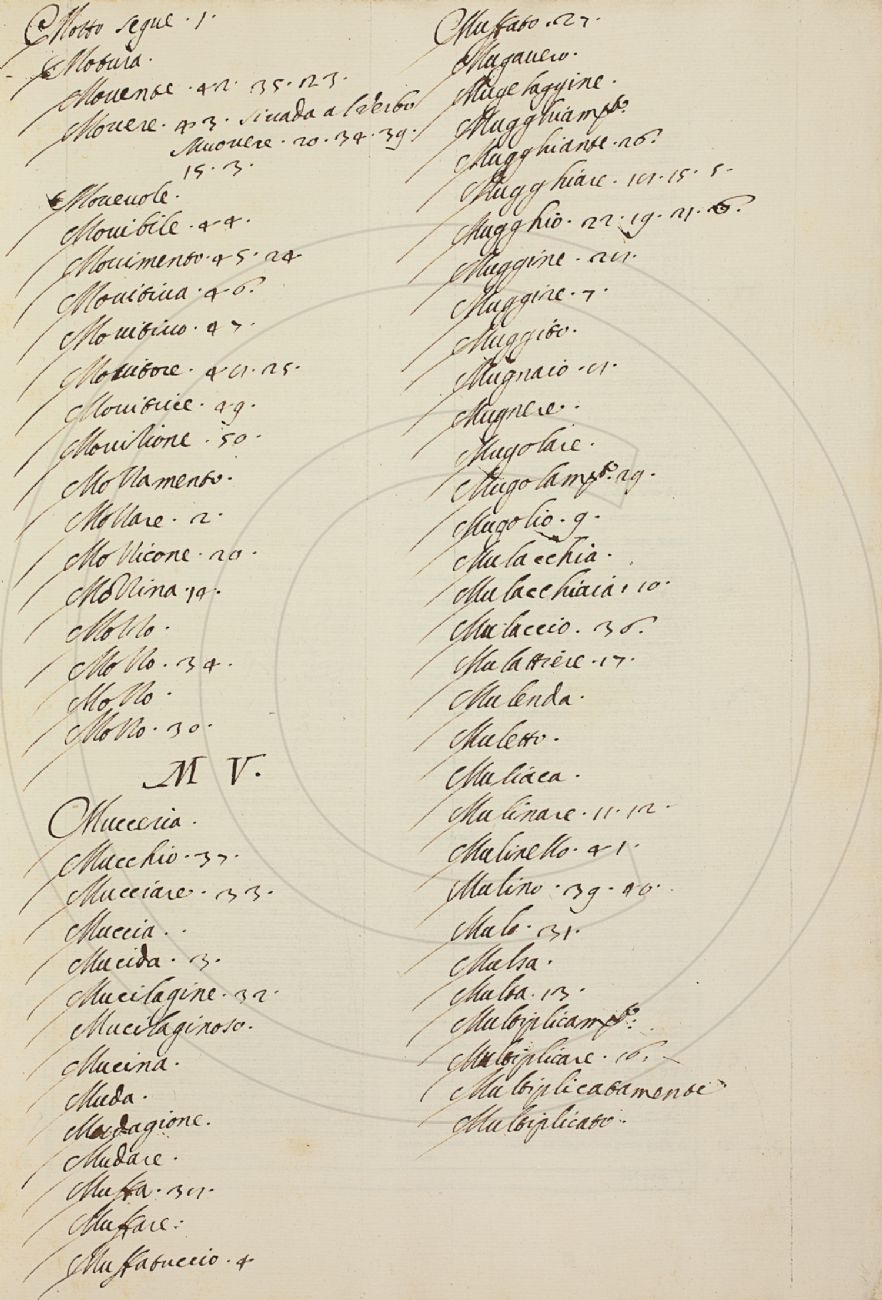 Motto segue . 1 .
Motura .
Mouente . 42 . 35 . 23 .
Mouere . 43 . si uada al Verbo
Muouere . 20 . 34 . 39 .
15 . 3 .
Moueuole .
Mouibile . 44 .
Mouimento . 45 . 24
Mouitiua . 46 .
Mouitiuo . 47 .
Mouitore . 48 . 25 .
Mouitrice . 49 .
Mouizione . 50 .
Mozzamento .
Mozzare . 2 .
Mozzicone . 20 .
Mozzina . 19 .
Mozzo .
Mozzo . 34 .
Mozzo .
Mozzo . 30 .
M V .
Mucceria .
Mucchio . 37 .
Mucciare . 33 .
Muccia . .
Mucida . 3 .
Mucilagine . 32 .
Mucilaginoso .
Mucina .
Muda .
Mudagione .
Mudare .
Muffa . 38 .
Muffare :
Muffatuccio . 4
Muffato . 27 .
Mugauero .
Mugelaggine .
Mugghiamto
Mugghiante . 26 .
Mugghiare . 18 . 15 . 5 .
Mugghio . 22 . 19 . 21 . 26 .
Muggine . 28 .
Muggire . 7 .
Muggito .
Mugnaio . 8 .
Mugnere . .
Mugolare .
Mugolamto . 29 .
Mugolio . 9 .
Mulacchia .
Mulacchiaia . 10 .
Mulaccio . 36 .
Mulattiere . 17 .
Mulenda .
Muletto .
Muliaca .
Mulinare . 11 . 12 .
Mulinello . 41 .
Mulino . 39 . 40 .
Mulo . 31 .
Mulsa .
Multa . 13 .
Multiplicamto :
Multiplicare . 16 .
Multiplicatamente
Multiplicato .